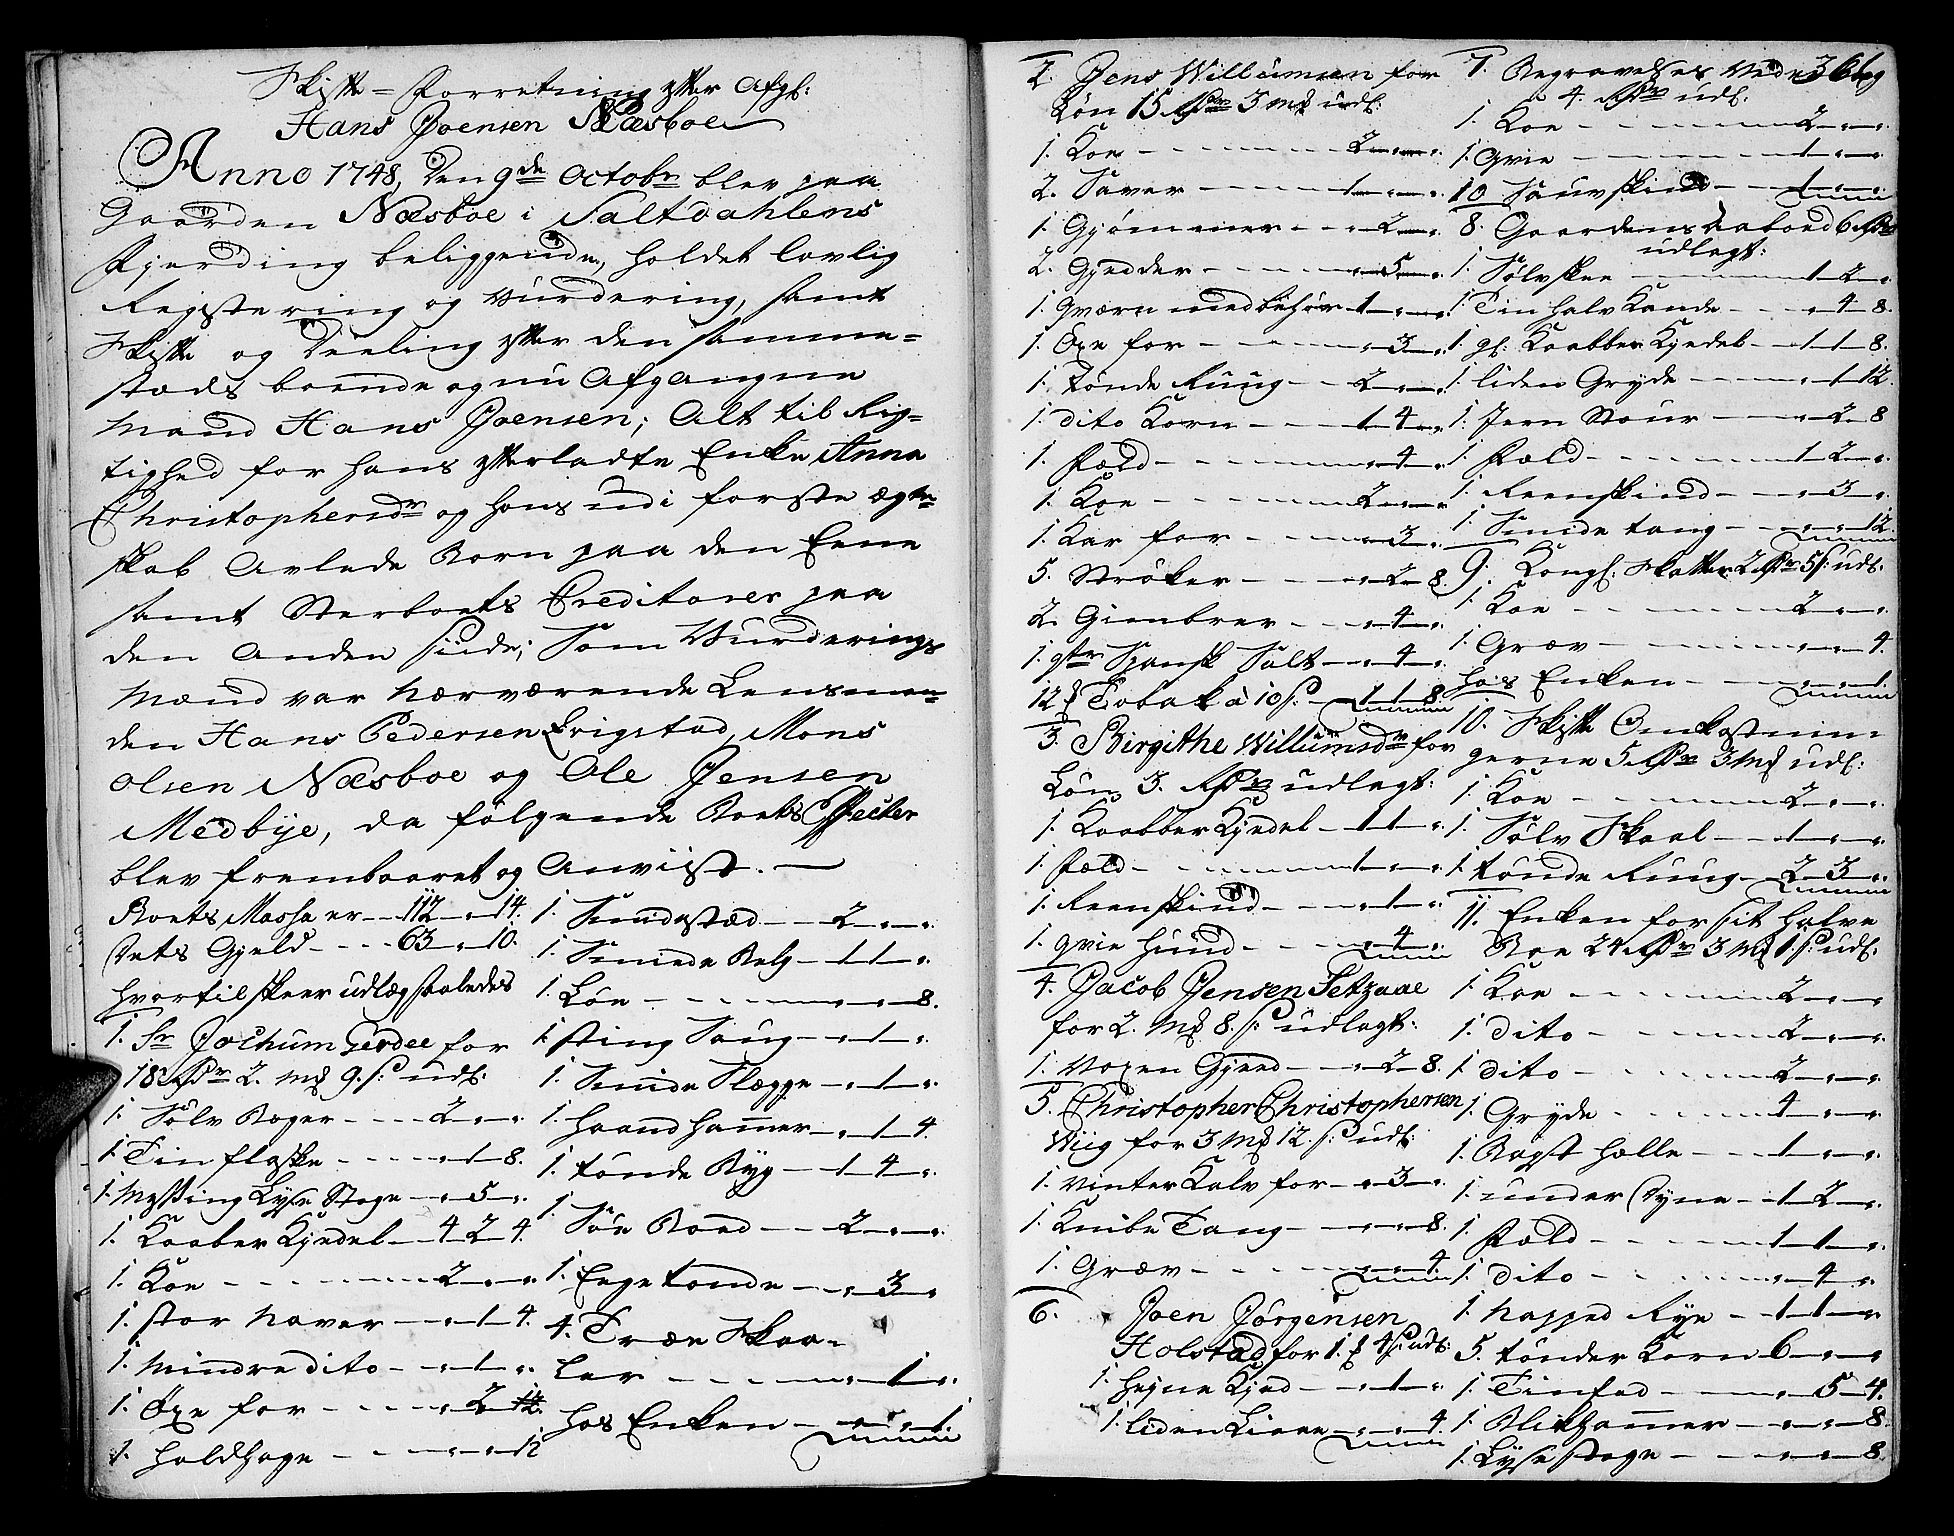 Skifte-Forretning efter Afgl:
Hans Joensen Næsboe
Anno 1748, Den 9de Octobr blev paa
Gaarden Næsboe i Saltdahlens
Fjerding beliggende, holdet lovlig
Registering og Vurdering, samt
Skifte og Deeling efter den samme=
stæds boende og nu Afgangne
Mand Hans Joensen; Alt til Rig=
tighed for hans efterladte Enke Anna
Christophersdr og hans udi første ægte=
skab Avlede Børn paa den Eene
samt Sterboets Creditorer paa
den Anden siide; Som Vurderings
Mænd var nærværende Lensman=
den Hans Pedersen Erigstad, Mons
Olsen Næsboe og Ole Jensen
Medbye, da følgende Boets Effecter
blev frembaaret og Anvist. —
Boets Massa er -- 112 - " - 14.
Dets Gjeld - - - - 63 - " - 10.
hvortil skeer udlæg saaledes
1. Sr Jochum Gerdee for
18 Rdr 2. Mk 9. s: udl:
1. Sølv Bæger - - - 2 - " - ".
1. Tinflaske - - - " - 1 - 8.
1. Messing Lyse Stage - " - 5 - ".
1. Kaaber Kjedel - 4 - 2 - 4.
1. Koe - - - - 2 - " - ".
1. stor Naver - - " - 1 - 4.
1. Mindre dito - - " - 1 - ".
1. Øxe for - - - " - 2 - 12.
1. Holdhage - - - " - " - 12
1. Smidstæd - - 2 - " - ".
1. Smide Belg - 1 - 1 - ".
1. Løe - - - - " - " - 8.
1. sting Saug - - " - 1 - ".
1. Smide Slægge - " - 1 - ".
1. haand hammer - " - 1 - 4.
1. tønde Byg - - 1 - 4 - ".
1. Søe Boed - - 2 - " - ".
1. Eege tønde - - " - 3 - ".
4. Træe Skaa=
ler - - - - " - 1 - ".
hos Enken - - " - " - 1
2. Jens Willumsen for
Løn 15 Rdr 3 Mk udl:
1. Koe - - - - 2 - " - ".
2. Sauer - - - 1 - " - ".
1. Gjømmer - - " - 2 - ".
2. Gjedder - - - " - 5 - ".
1. Qværn med behør 1 - " - ".
1. Øxe for - - - " - 3 - ".
1. Tønde Ruug - - 2 - " - ".
1. dito Korn - - 1 - 4 - ".
1. Fæld - - - - " - 4 - ".
1. Koe - - - - 2 - " - ".
1. Kar for - - - " - 3 - ".
5. Strøker - - - " - 2 - 8.
2. Gienbrer - - " - 4 - ".
1. qtr Spansk Salt - " - 4 - ".
12 ℔ Tobak à 10 s: - 1 - 1 - 8.
3. Birgithe Willumsdr for
Løn 3. Rdr udlagt:
1. Kaabber Kjedel - 1 - 1 - ".
1. Fæld - - - - 1 - " - ".
1. Reenskind - - " - 1 - ".
1. Qvie hund - - " - 4 - ".
4. Jacob Jensen Setzaae
for 2. Mk 8. s: udlagt:
1. Voxen Gjeed - - " - 2 - 8.
5. Christopher Christophersen
Wiig for 3 Mk 12. s: udl:
1. Vinter Kalv for - " - 3 - ".
1. Knibe Tang - - " - " - 8.
1. Græv - - - - " - " - 4.
6. Joen Jørgensen
Holstad for 1. Mk 4 s: udl:
1. hejne Kjed - - " - 1 - ".
1. liden Liaae - - " - " - 4.
36
7. Begravelses Vederlag
4. Rdr udl:
1. Koe - - - - 2 - " - ".
1. Qvie - - - - 1 - " - ".
10 Sauskind - - 1 - " - ".
8. Gaardens Aaboed 6 Rdr
udlagt:
1. Sølvskee - - - 1 - 2 - ".
1. Tin halv Kande - " - 4 - 8.
1. gl: Kaabber Kjedel - 1 - 1 - 8.
1. liden Gryde - - " - 1 - 12.
1. Jern Stour - - " - 2 - 8
1. Fæld - - - - 1 - 2 - ".
1. Reenskind - - " - 3 - ".
1. Smide tang - - " - " - 12.
9. Kongl: Skatter 2 Rdr 5 s: udl:
1. Koe - - - - 2 - " - ".
1. Græv - - - - " - " - 4.
hos Enken - - - " - " - 1.
10. Skifte Omkostnin=
gerne 5 Rdr 3 Mk udl:
1. Koe - - - - 2 - " - ".
1. Sølv Skaal - - 1 - " - ".
1. tønde Ruug - 2 - 3 - ".
11. Enken for sit halve
Boe 24 Rdr 3 Mk 1 s: udl:
1. Koe - - - - 2 - " - ".
1. dito - - - - 2 - " - ".
1. dito - - - - 2 - " - ".
1. Gryde - - - 4 - " - ".
1. Bagst hælle - - 1 - " - ".
1. under Dyne - - 1 - 2 - ".
1. Fæld - - - - 1 - 1 - ".
1. dito - - - - " - 4 - ".
1. Napped Rye - - 1 - 1 - ".
5. tønder Korn 6 - " - ".
1. Tinfad - - - " - 5 - 4.
1. Blikhammer - - " - " - 8.
1. Lysestage - - " - " - 8.